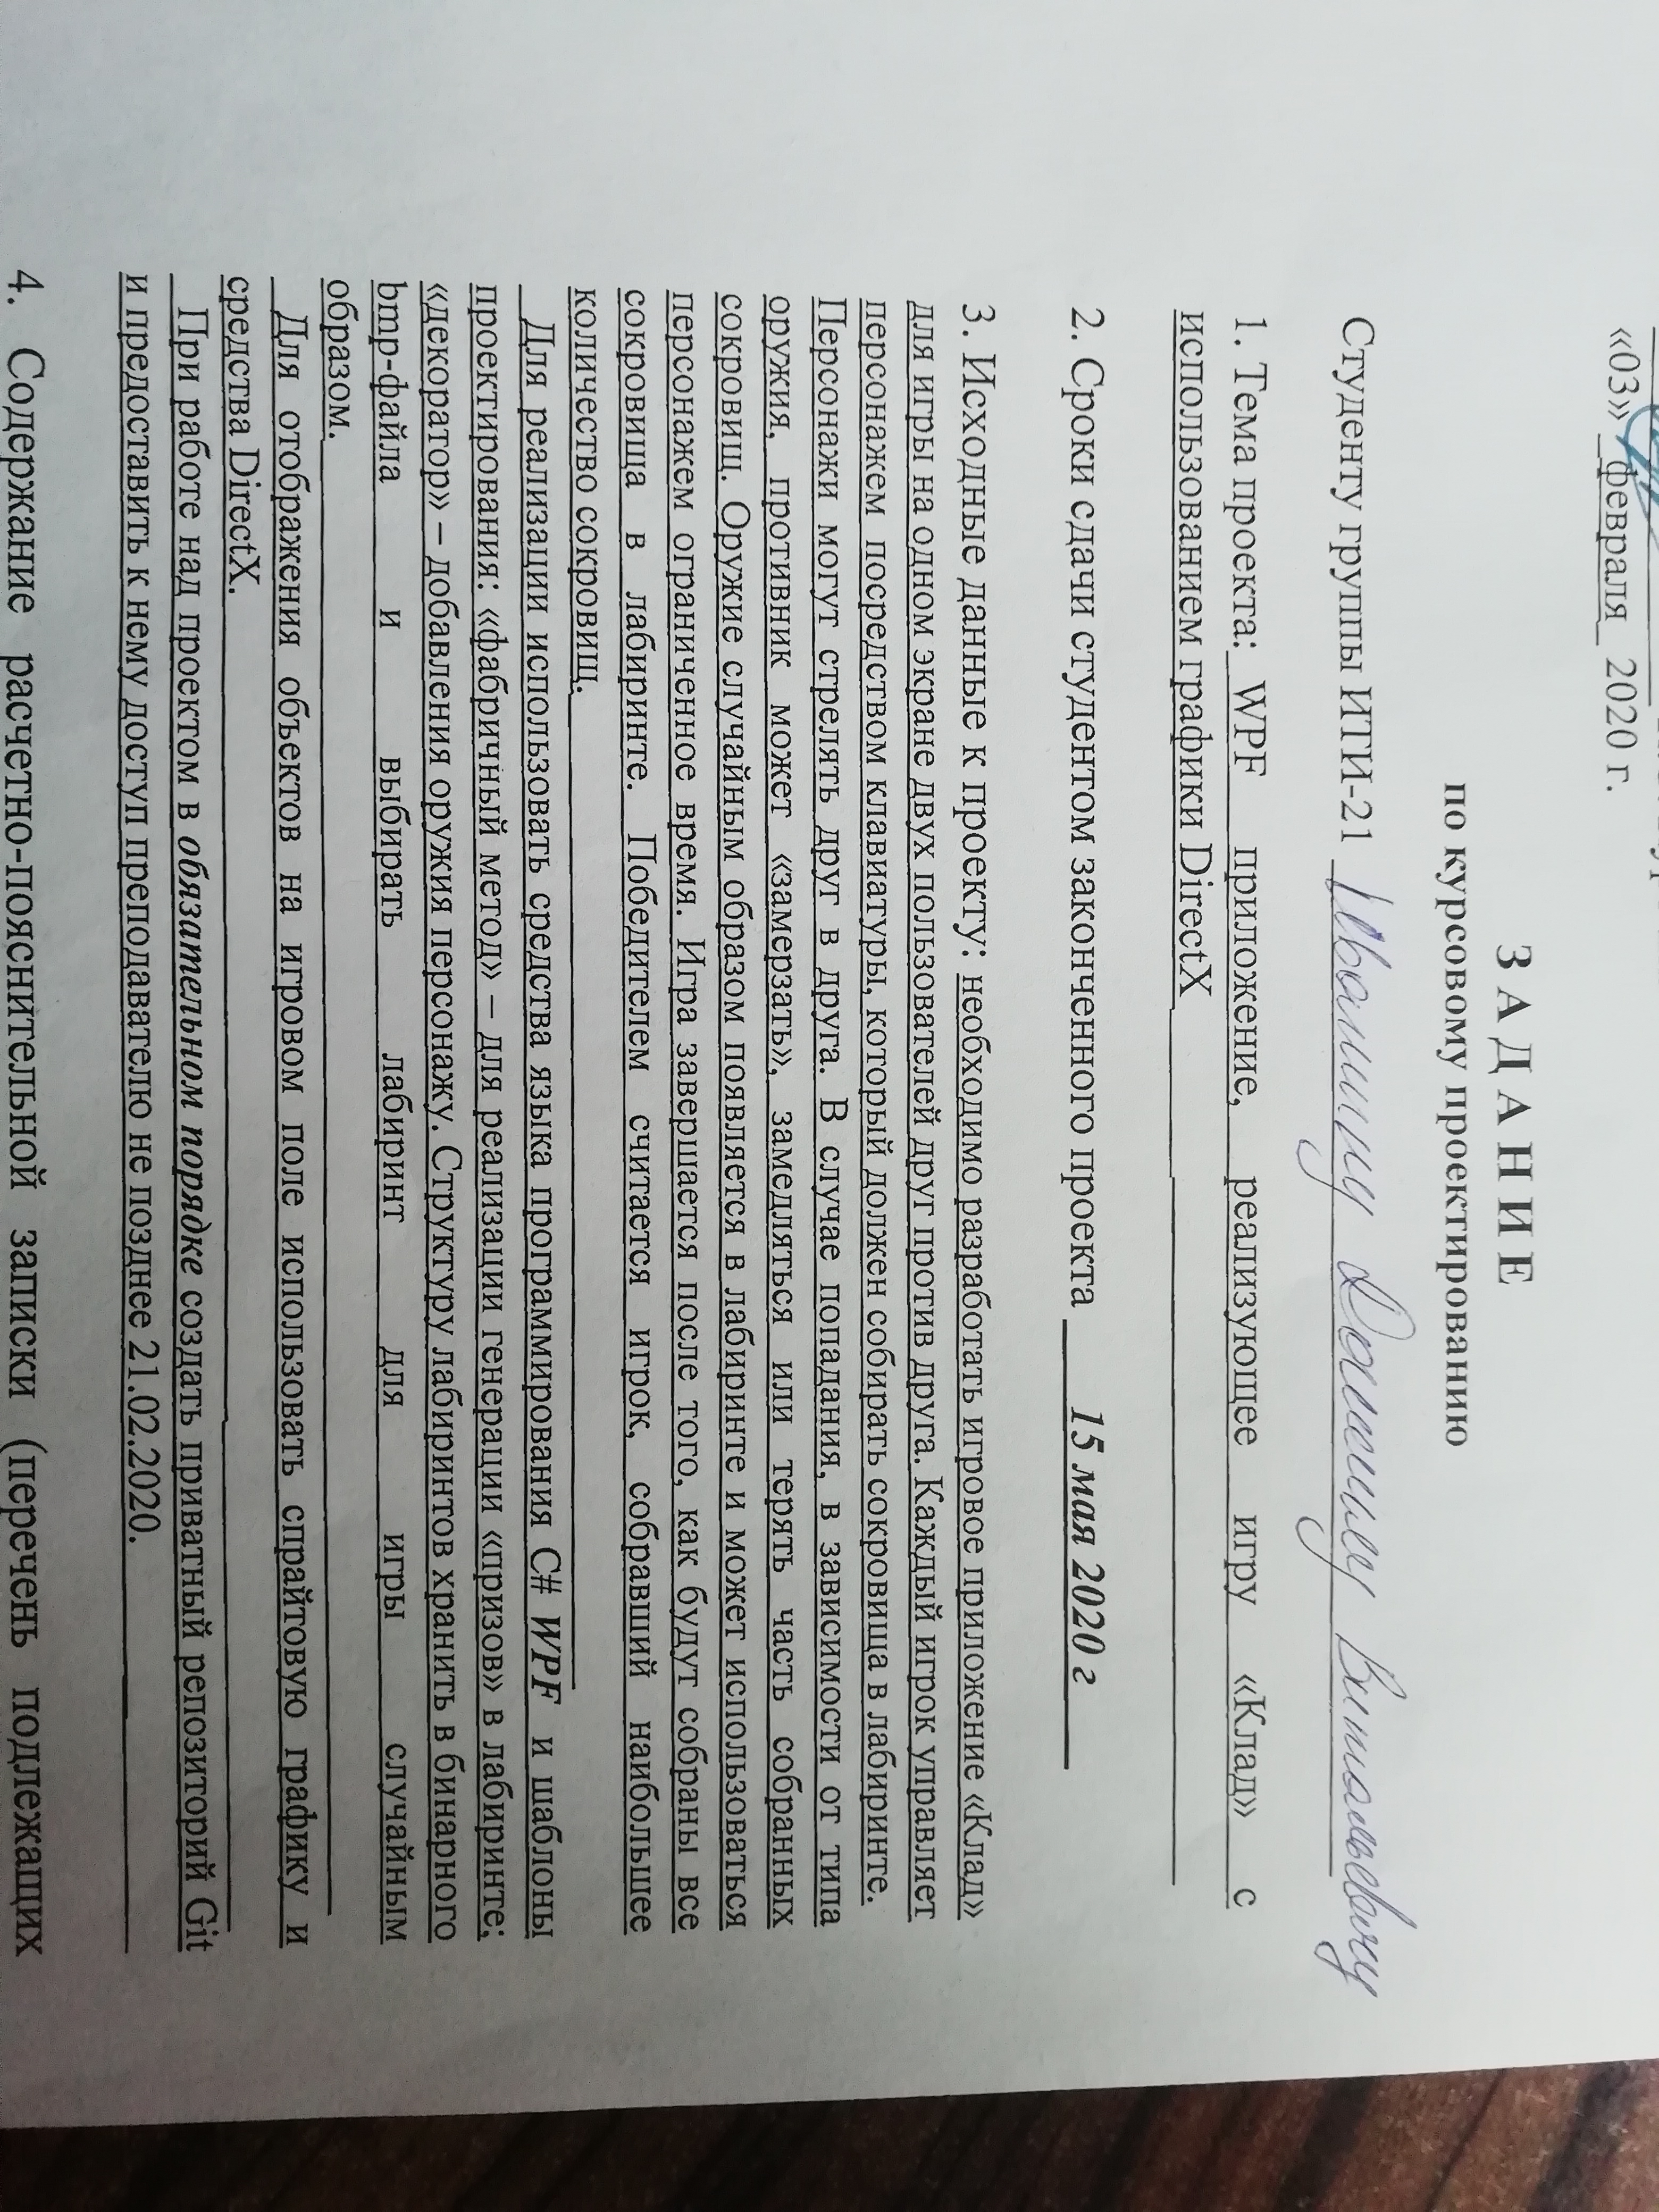 «03» февраля 2020 г.
З А Д А Н И Е
по курсовому проектированию
Студенту группы ИТИ-21 Данииду Витальевичу
1. Тема проекта: WPF приложение, реализующее игру «Клад» с
использованием графики DirectX
2. Сроки сдачи студентом законченного проекта 15 мая 2020 г
3. Исходные данные к проекту: необходимо разработать игровое приложение «Клад»
для игры на одном экране двух пользователей друг против друга. Каждый игрок управляет
персонажем посредством клавиатуры, который должен собирать сокровища в лабиринте.
Персонажи могут стрелять друг в друга. В случае попадания, в зависимости от типа
оружия, противник может «замерзать», замедляться или терять часть собранных
сокровищ. Оружие случайным образом появляется в лабиринте и может использоваться
персонажем ограниченное время. Игра завершается после того, как будут собраны все
сокровища в лабиринте. Победителем считается игрок, собравший наибольшее
количество сокровищ.
Для реализации использовать средства языка программирования C# WPF и шаблоны
проектирования: «фабричный метод» – для реализации генерации «призов» в лабиринте;
«декоратор» – добавления оружия персонажу. Структуру лабиринтов хранить в бинарного
bmp-файла и выбирать лабиринт для игры случайным
образом.
Для отображения объектов на игровом поле использовать спрайтовую графику и
средства DirectX.
При работе над проектом в обязательном порядке создать приватный репозиторий Git
и предоставить к нему доступ преподавателю не позднее 21.02.2020.
4. Содержание расчетно-пояснительной записки (перечень подлежащих